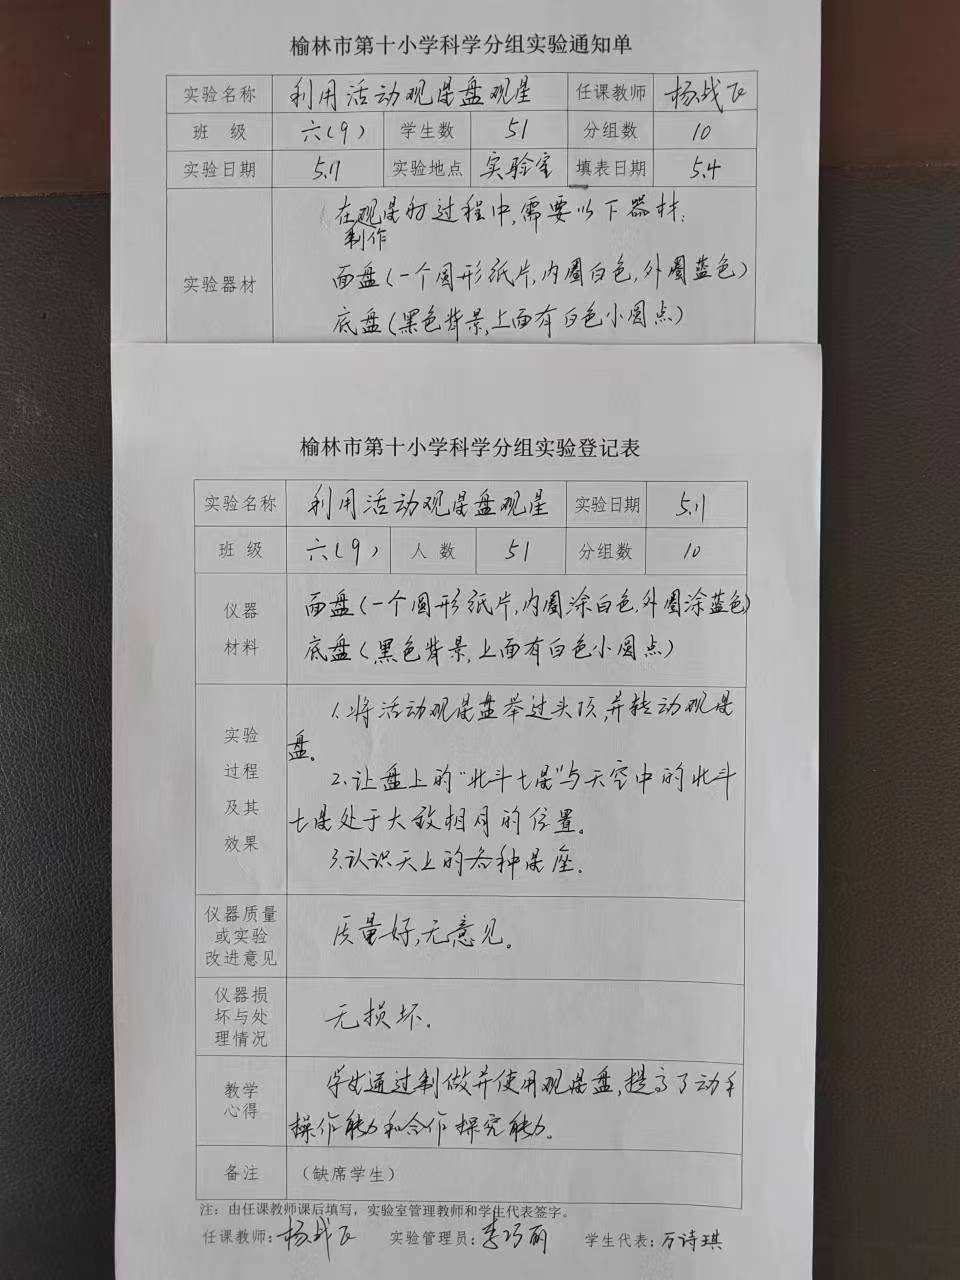 榆林市第十小学科学分组实验通知单
实验名称 利用活动观星盘观星 任课教师 杨战飞
班 级 六(9) 学生数 51 分组数 10
实验日期 5.11 实验地点 实验室 填表日期 5.4
在观星的过程中,需要以下器材:
制作
实验器材 面盘(一个圆形纸片,内圈白色,外圈蓝色)
底盘(黑色背景,上面有白色小圆点)
榆林市第十小学科学分组实验登记表
实验名称 利用活动观星盘观星 实验日期 5.11
班 级 六(9) 人 数 51 分组数 10
仪器 面盘(一个圆形纸片,内圈涂白色,外圈涂蓝色)
材料 底盘(黑色背景,上面有白色小圆点)
实验
过程
及其
效果
1.将活动观星盘举过头顶,并转动观星
盘。
2.让盘上的“北斗七星”与天空中的北斗
七星处于大致相同的位置。
3.认识天上的各种星座.
仪器质量
或实验
改进意见
质量好,无意见。
仪器损
坏与处
理情况
无损坏.
教学
心得
学生通过制做并使用观星盘,提高了动手
操作能力和合作探究能力。
备注 (缺席学生)
注: 由任课教师课后填写, 实验室管理教师和学生代表签字。
任课教师: 杨战飞 实验管理员: 李巧丽 学生代表: 万诗琪